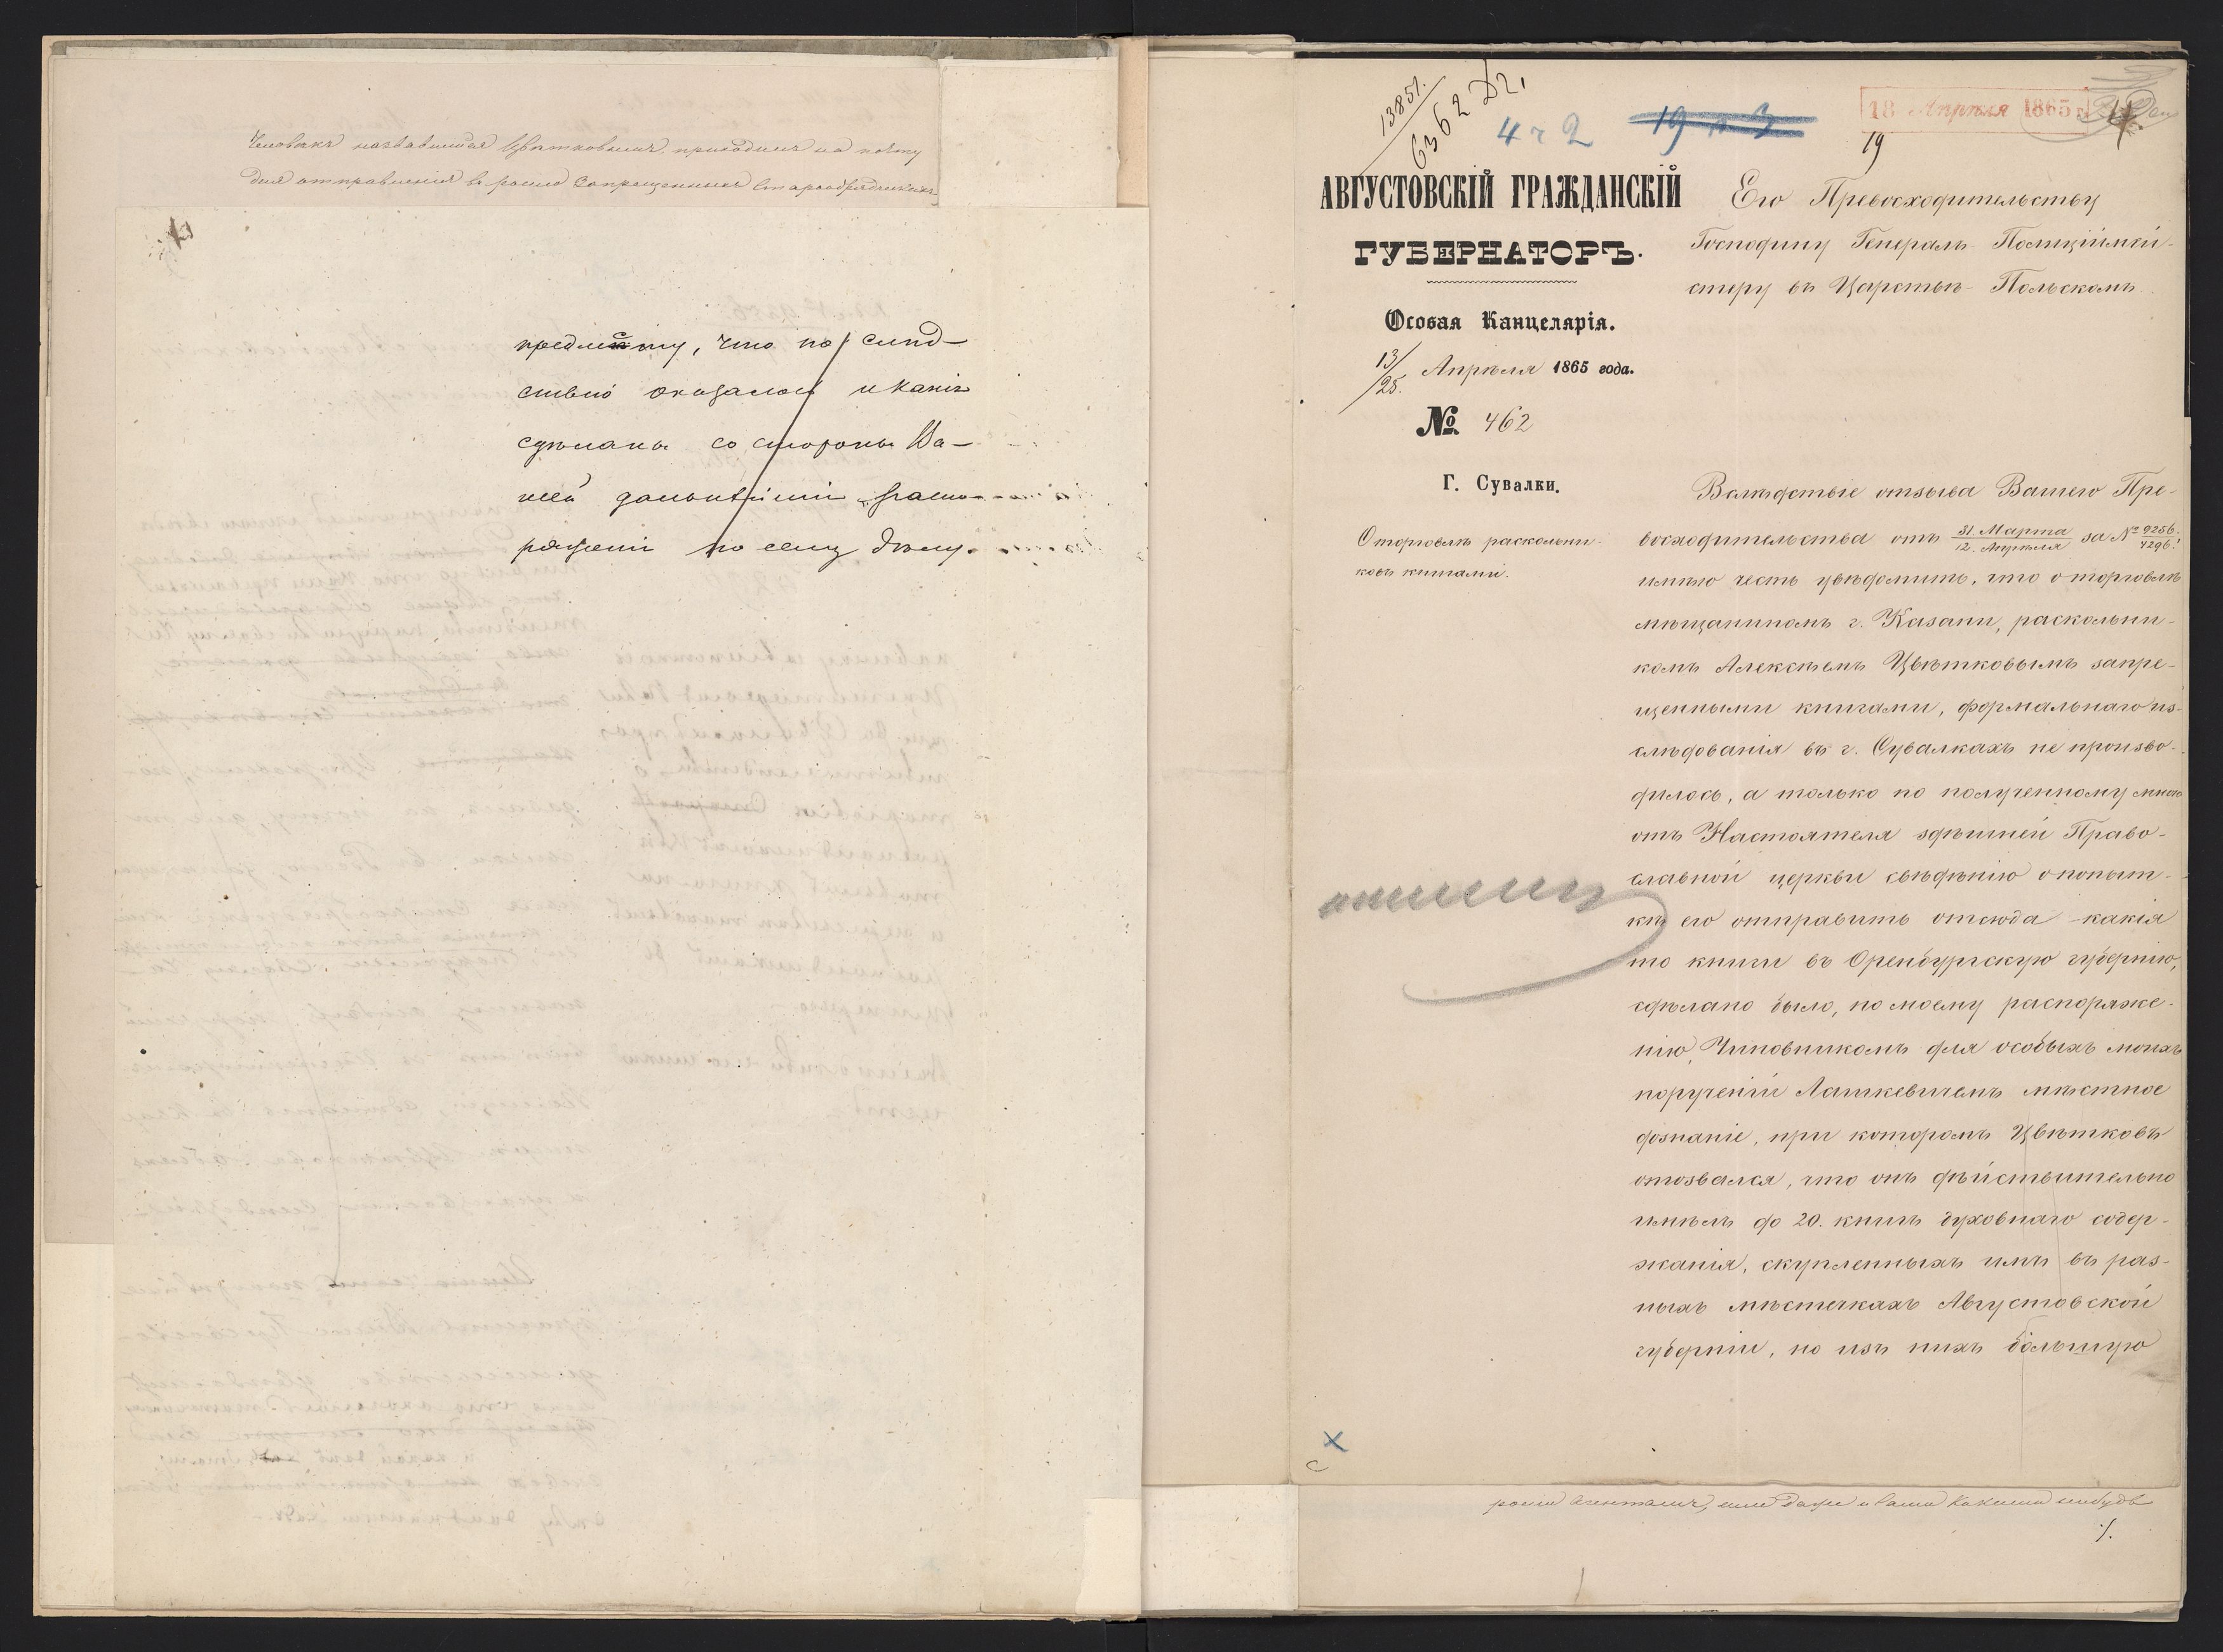 Человѣкъ назвавшійся Цвѣтковымъ приходилъ на почту
для отправленія въ запрещенныхъ старообрядческихъ
предмету, что по слѣд-
ствію оказалось и какія
сдѣланы со стороны Ва-
шей дальнѣйшія распо-
ряженія по сему дѣлу.
13851.
6362
4 ч 2
19 п 3
18 Апрѣля 1865
19
АВГУСТОВСКІЙ ГРАЖДАНСКІЙ
ГУБЕРНАТОРЪ.
Особая Канцелярія.
13/25. Апрѣля 1865 года.
№ 462
Г. Сувалки.
О торговлѣ раскольни-
ковъ книгами.
Его Превосходительству
Господину Генералъ-Полиціймей-
стеру въ Царствѣ Польскомъ.
Вслѣдствіе отзыва Вашего Пре-
восходительства отъ 31. Марта / 12. Апрѣля за № 9256 / 4296.
имѣю честь увѣдомить, что о торговлѣ
мѣщаниномъ г. Казани, раскольни-
комъ Алексѣемъ Цвѣтковымъ запре-
щенными книгами, формальнаго из-
слѣдованія въ г. Сувалкахъ не произво-
дилось, а только по полученному мною
отъ Настоятеля здѣшней Право-
славной церкви свѣдѣнію о попыт-
кѣ его отправить отсюда какія
то книги въ Оренбургскую губернію,
сдѣлано было, по моему распоряже-
нію, Чиновникомъ для особыхъ моихъ
порученій Лашкевичемъ мѣстное
дознаніе, при которомъ Цвѣтковъ
отозвался, что онъ дѣйствительно
имѣлъ до 20. книгъ духовнаго содер-
жанія, скупленныхъ имъ въ раз-
ныхъ мѣстечкахъ Августовской
губерніи, но изъ нихъ большую
агентами, или даже и сами какими нибудь